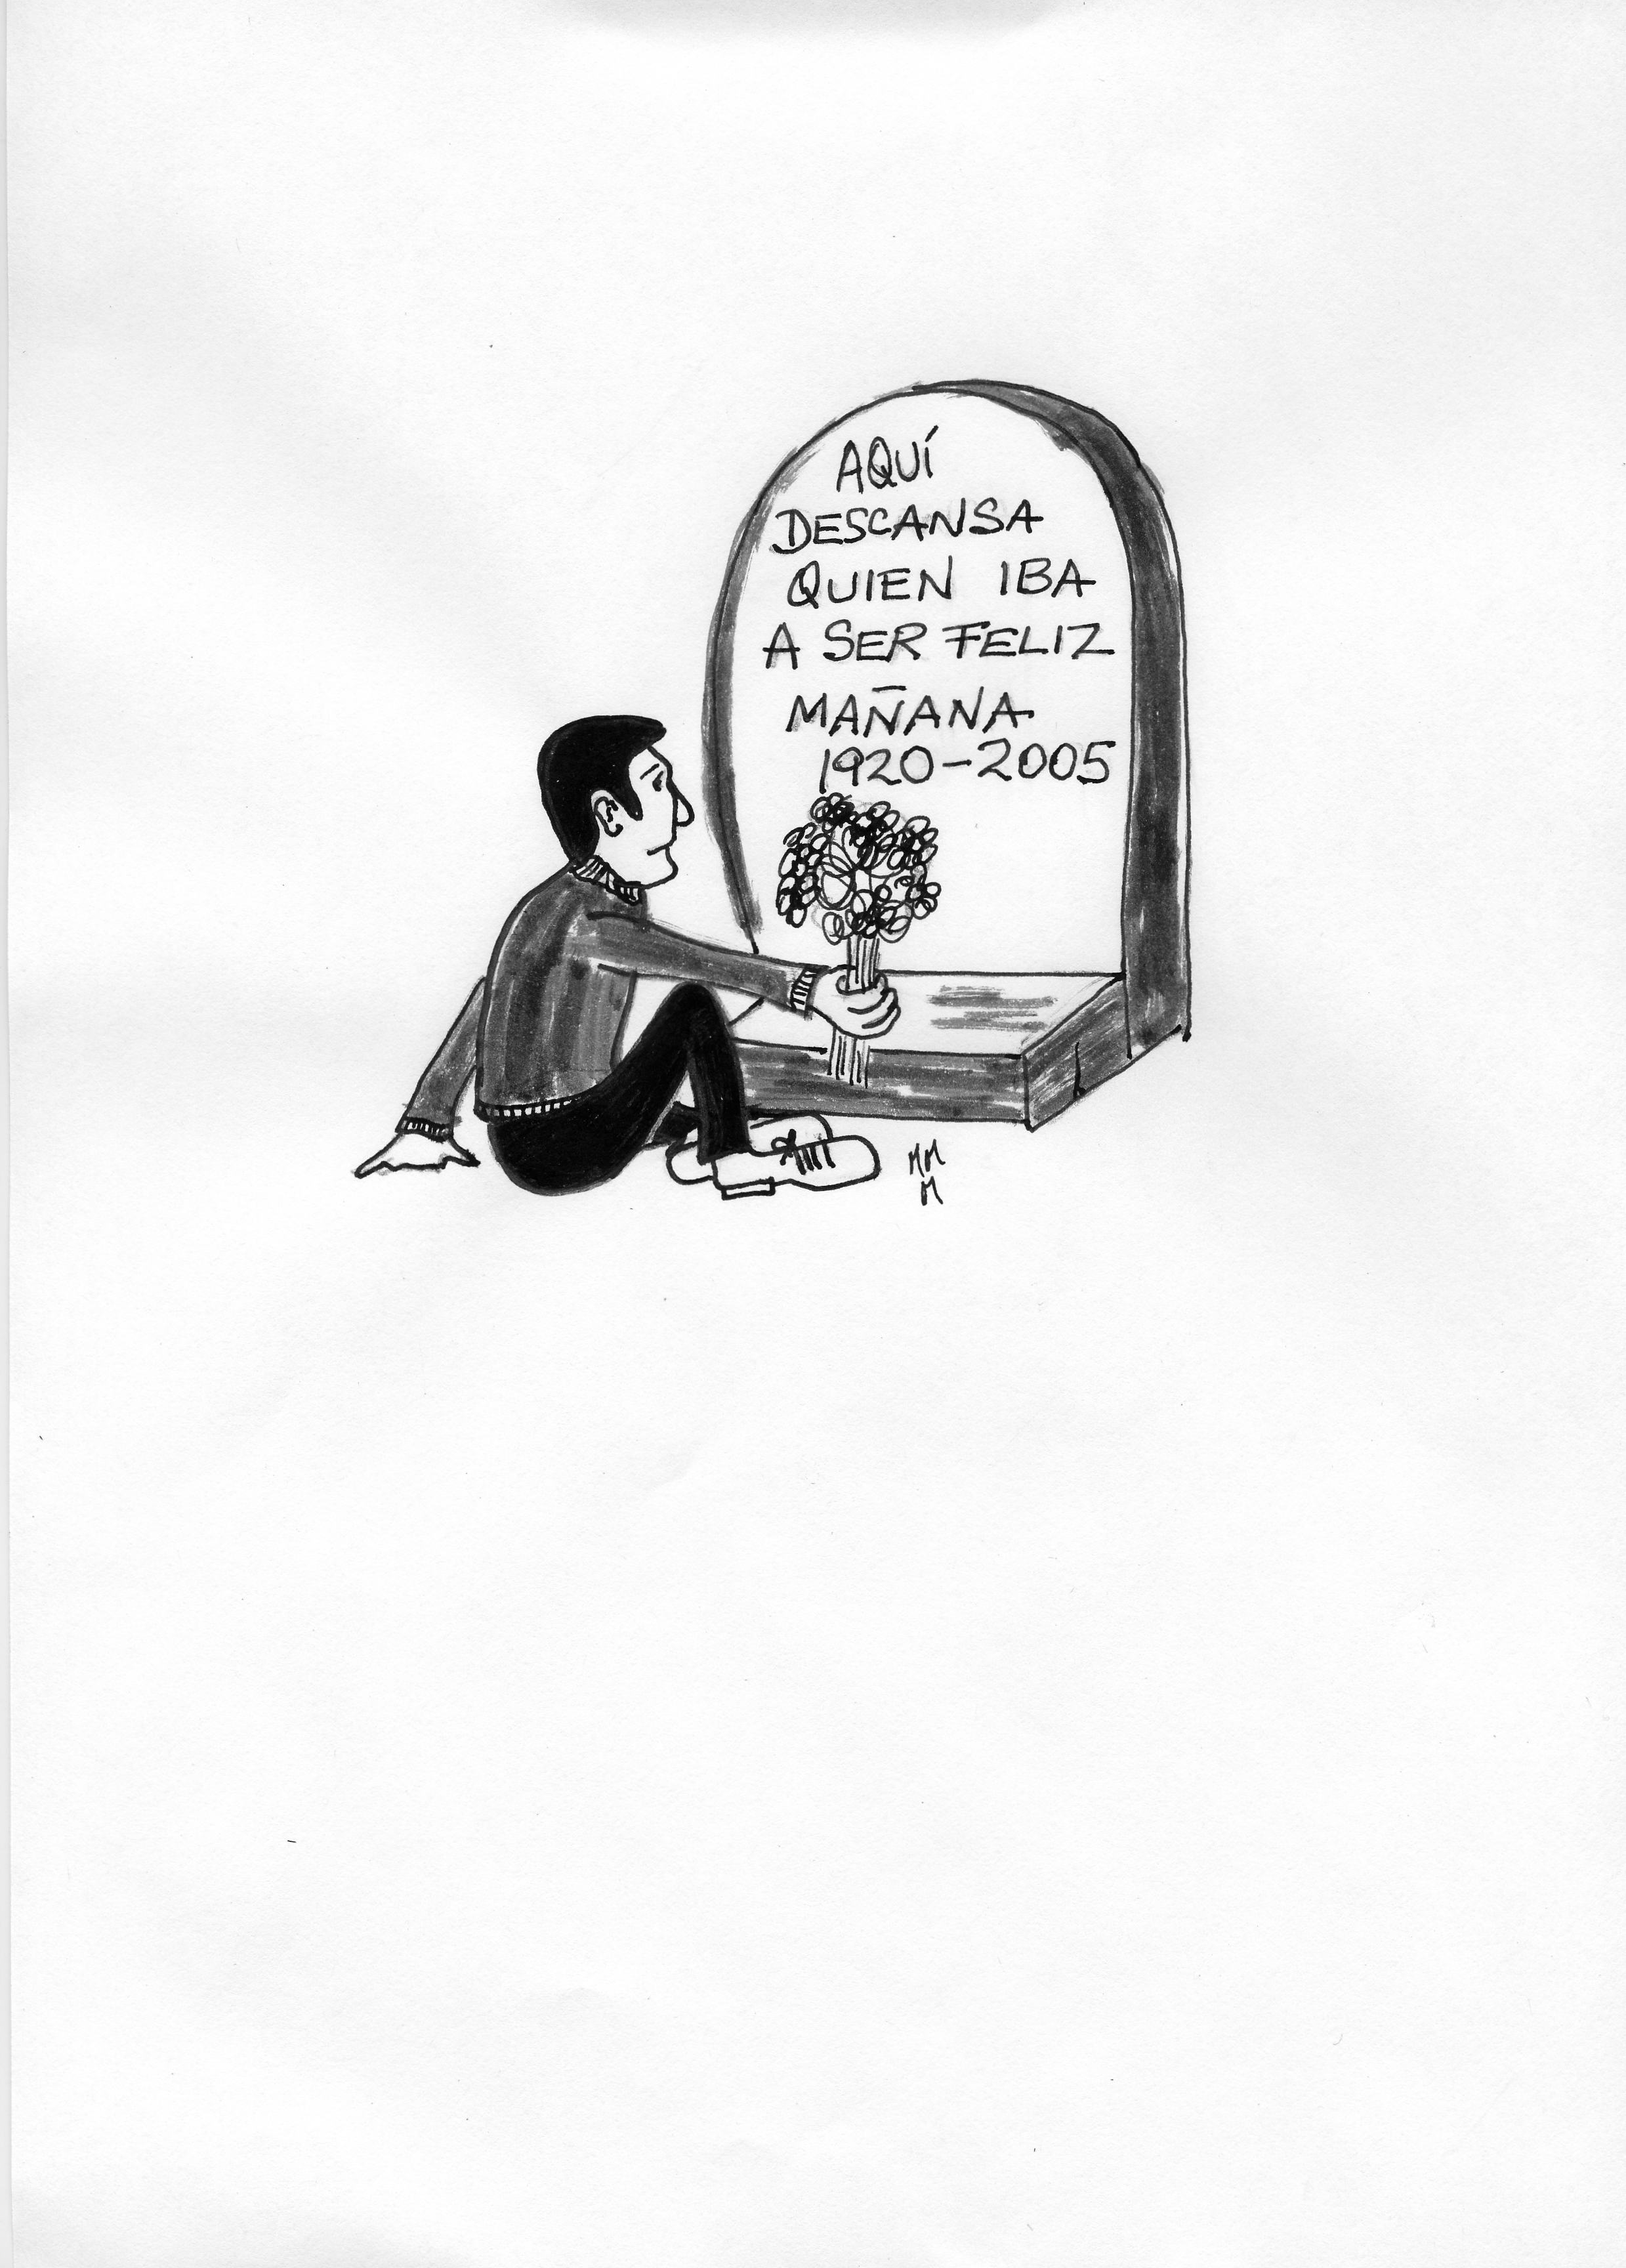 AQUÍ
DESCANSA
QUIEN IBA
A SER FELIZ
MAÑANA
1920-2005
MM
M